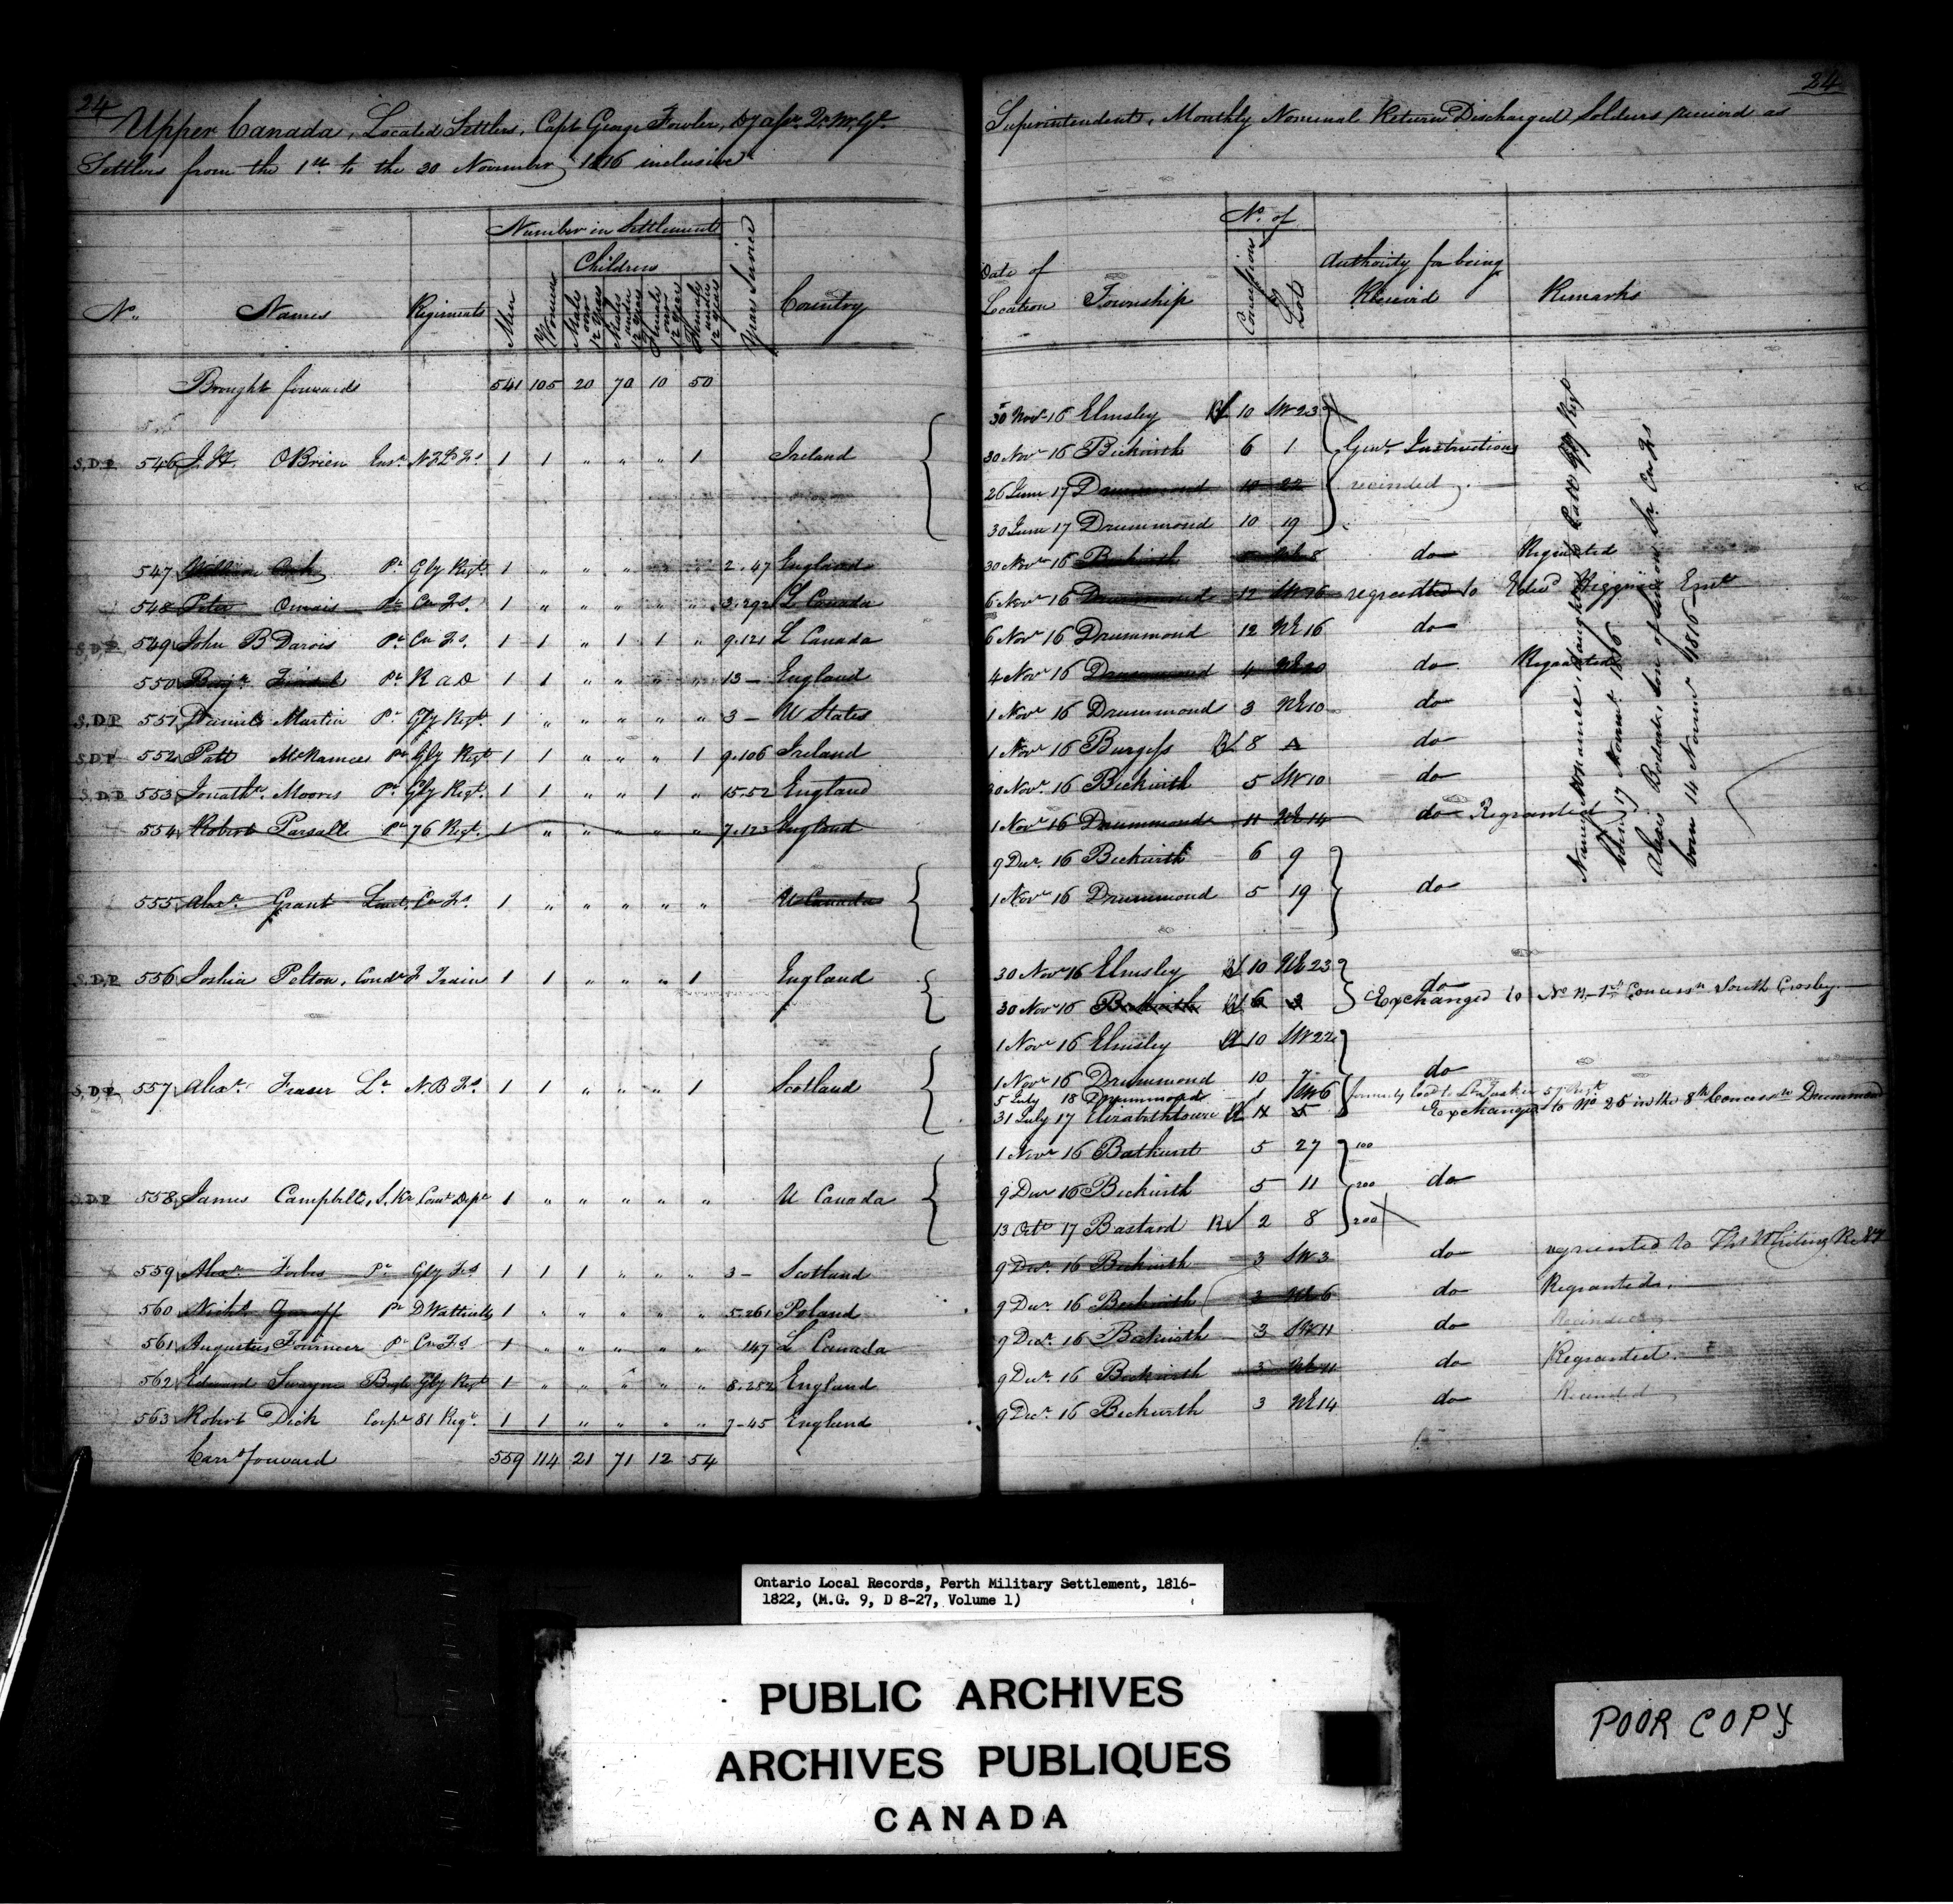 24
Upper Canada, Located Settlers, Capt George Fowler,
Settlers from the 1st to the 30 November 1816 inclusive
24
Superintendent, Monthly Nominal Return Discharged Soldiers received as
No. Names Regiments Number in Settlement Years Service Country
Men Women Children
Males over 12 years Males under 12 years Females over 12 years Females under 12 years
Date of Location Township No. of Concessions Lots Authority for being Received Remarks
Brought forwards 541 105 20 70 10 50
30 Novr 16 Elmsley 10 SW 23
S.D.P. 546 J. H. OBrien Ensn 1 1 " " " 1 Ireland
30 Novr 16 Beckwith 6 1 Genl. Instructions
26 June 17 Drummond 10 22 recinded
30 June 17 Drummond 10 19
547 Pt Gly Regt. 1 " " " " " 2.47 England 30 Novr 16 Beckwith NE 8 do Regranted
548 Peter Pt Cn Fs. 1 " " " " " 3.292 L Canada 6 Novr 16 Drummond 12 SW 16 regranted to Edwd Higgins Emt
S.D.P. 549 John B Darois Pt Cn Fs. 1 1 " 1 1 " 9.121 L Canada 6 Novr 16 Drummond 12 NE 16 do
550 Benjn Pt R A D 1 1 " " " " 13 — England 4 Novr 16 Drummond 4 NE 20 do Regranted
S.D.P 551 Daniel Martin Pt Gly Regt. 1 " " " " " 3 — U States 1 Novr 16 Drummond 3 NE 10 do
S.D.P 552 Patt McNamee Pt Gly Regt 1 1 " " " 1 9.106 Ireland 1 Novr 16 Burgess 8 do
S.D.P 553 Jonathn. Moores Pt Gly Regt. 1 1 " " 1 " 15.52 England 30 Novr 16 Beckwith 5 SW 10 do
554 Robert Parsall Pt 76 Regt. 1 " " " " " 7.123 England 1 Novr 16 Drummond 11 NE 14 do Regranted
9 Decr. 16 Beckwith 6 9
555 Alexr. Grant Lieut. Cn Fs. 1 " " " " " U Canada 1 Novr 16 Drummond 5 19 do
S.D.P. 556 Joshia Pelton, Condr F Train 1 1 " " " 1 England 30 Novr 16 Elmsley 10 NE 23 do
30 Novr 16 Beckwith 6 3 Exchanged to No 1st Concessn South Crosley
1 Novr 16 Elmsley 10 SW 22
S.D.P. 557 Alexr. Fraser Lt N.B Fs 1 1 " " " 1 Scotland 1 Novr 16 Drummond 10 7 do
5 July 18 Drummond 1 SW 6 formerly locd to Lt
31 July 17 Elizabethtown 5 Exchanged to No 25 in the 8th Concessn Drummond
1 Novr 16 Bathurst 5 27 100
S.D.P 558 James Campbell, S. Kr Comt Dept 1 " " " " " U Canada 9 Decr 16 Beckwith 5 11 200 do
13 Octr 17 Bastard 2 8 200
559 Alexr. Forbes Pt Gly Fs 1 1 1 " " " 3 — Scotland 9 Decr. 16 Beckwith 3 SW 3 do regranted to Thos Whiting
560 Pt D Wattvills 1 " " " " " 5.261 Poland 9 Decr. 16 Beckwith 3 NE 6 do Regranted.
561 Augustus Fournier Pt Cn Fs 1 " " " " " 147 L Canada 9 Decr. 16 Beckwith 3 SW 11 do Recinded
562 Edward Swayne Bugle Gly Regt 1 " " " " " 8.282 England 9 Decr. 16 Beckwith 3 NE 11 do Regranted.
563 Robert Dick Corpl 81 Regt. 1 1 " " " " 7-45 England 9 Decr. 16 Beckwith 3 NE 14 do Recinded
Carrd forward 559 114 21 71 12 54
Nancy McNamee, daughter to Patt Gly Regt
born 17 Novemr. 1816
son of Cn Fs
born 14 Novemr 1816
Ontario Local Records, Perth Military Settlement, 1816-
1822, (M.G. 9, D 8-27, Volume 1)
PUBLIC ARCHIVES
ARCHIVES PUBLIQUES
CANADA
POOR COPY